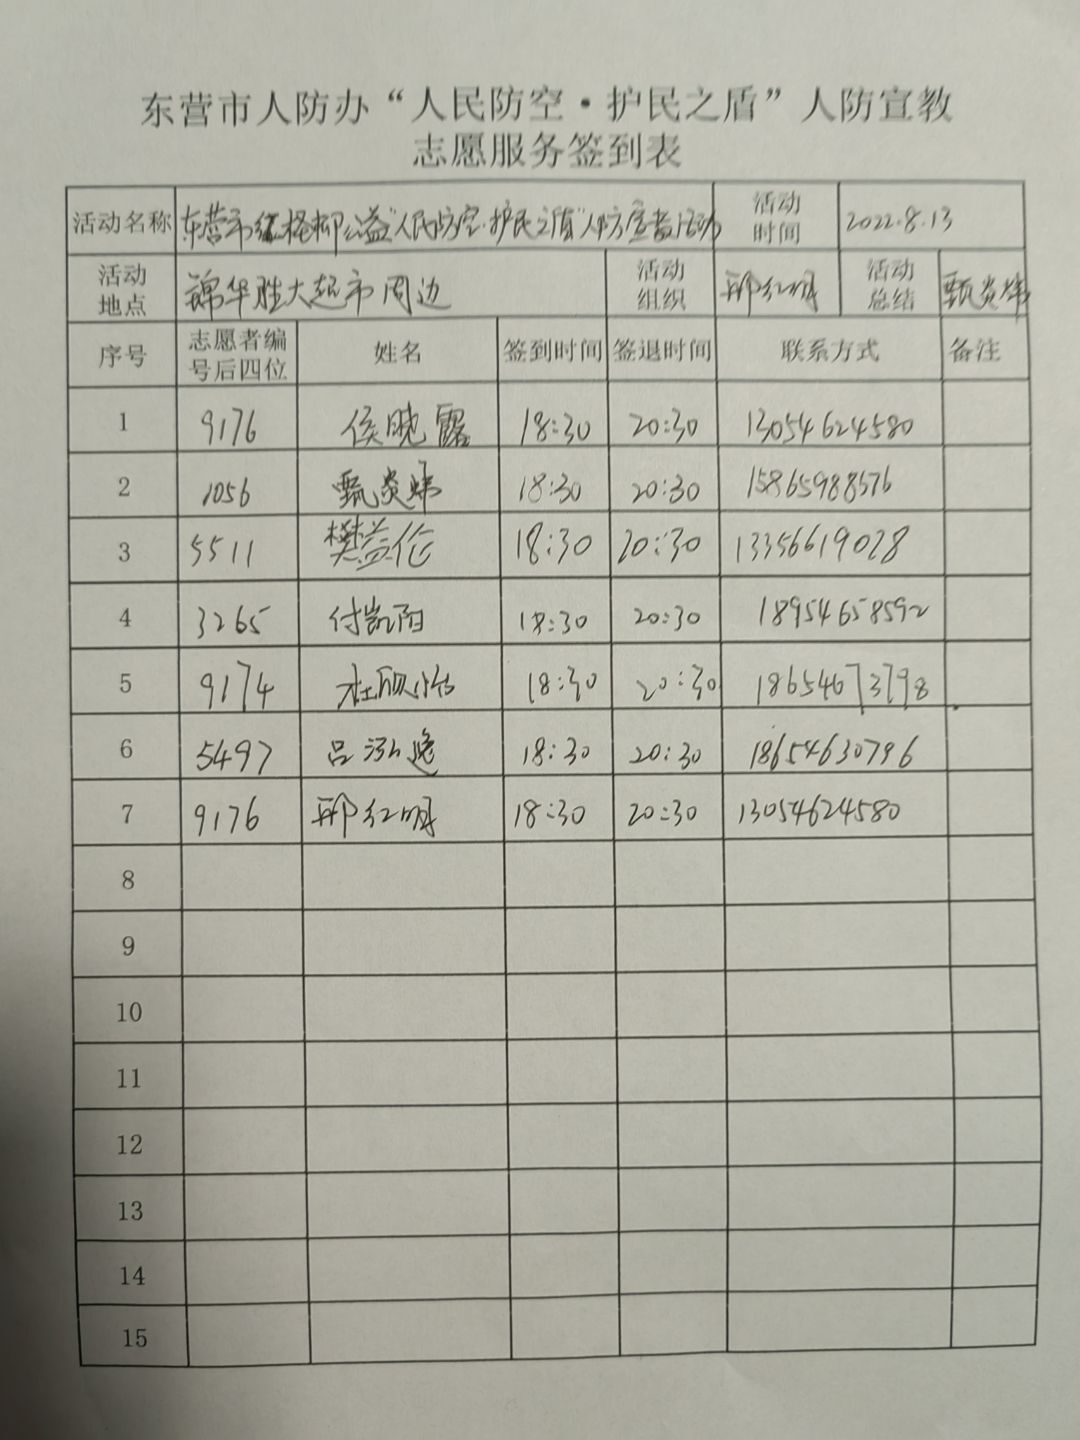 东营市人防办“人民防空·护民之盾”人防宣教
志愿服务签到表
活动名称 东营市红柽柳公益“人民防空·护民之盾”人防宣教活动 活动时间 2022.8.13
活动地点 锦华胜大超市周边 活动组织 邢红明 活动总结 甄炎
序号 志愿者编号后四位 姓名 签到时间 签退时间 联系方式 备注
1 9176 侯晓露 18:30 20:30 13054624580
2 1056 甄炎 18:30 20:30 15865988576
3 5511 樊益伦 18:30 20:30 13356619028
4 3265 付凯阳 18:30 20:30 18954658592
5 9174 杜欣怡 18:30 20:30 18654673798
6 5497 吕泓逸 18:30 20:30 18654630796
7 9176 邢红明 18:30 20:30 13054624580
8
9
10
11
12
13
14
15